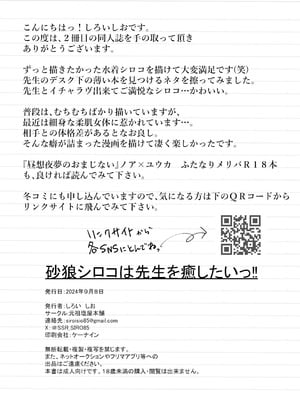 こんにちはっ！しろいしおです。
この度は、２冊目の同人誌を手の取って頂き
ありがとうございます。
ずっと描きたかった水着シロコを描けて大変満足です(笑)
先生のデスク下の薄い本を見つけるネタを擦ってみました。
先生とイチャラヴ出来てご満悦なシロコ…かわいい。
普段は、むちむちばかり描いていますが、
最近は細身な柔肌女体に惹かれています…。
相手との体格差があるとなお良し。
そんな癖が詰まった漫画を描けて凄く楽しかったです。
『昼想夜夢のおまじない』ノア×ユウカ ふたなりメリバＲ１８本
も、良ければ読んでみて下さい。
冬コミにも申し込んでいますので、気になる方は下のＱＲコードから
リンクサイトに飛んでみて下さい。
リンクサイトから
各SNSにとんでね。
砂狼シロコは先生を癒したいっ!!
発行日：2024年９月８日
発行者：しろい しお
サークル 元祖塩屋本舗
連絡先：sirosio85@gmail.com
X：@SSR_SIRO85
印刷会社：ケーナイン
無断転載・複製・複写を禁じます。
また、ネットオークションやフリマアプリ等への
出品はご遠慮ください。
本書は成人向けです。18歳未満の購入・閲覧は出来ません。